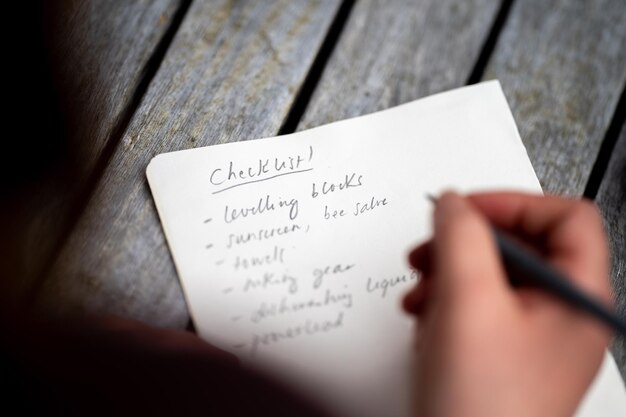 Checklist!
- levelling blocks
- sunscreen, bee salve
- towels
- hiking gear
- dishwashing liquid
- powerlead